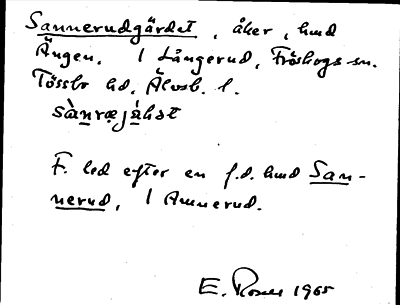 Sannerudgärdet, åker, hmd
Ängen, 1 Långerud, Fröskogs sn.
Tössbo hd, Älvsb. l.
sànræjáḷət
F. led efter en f.d. hmd San-
nerud, 1 Amnerud.
E. 1965